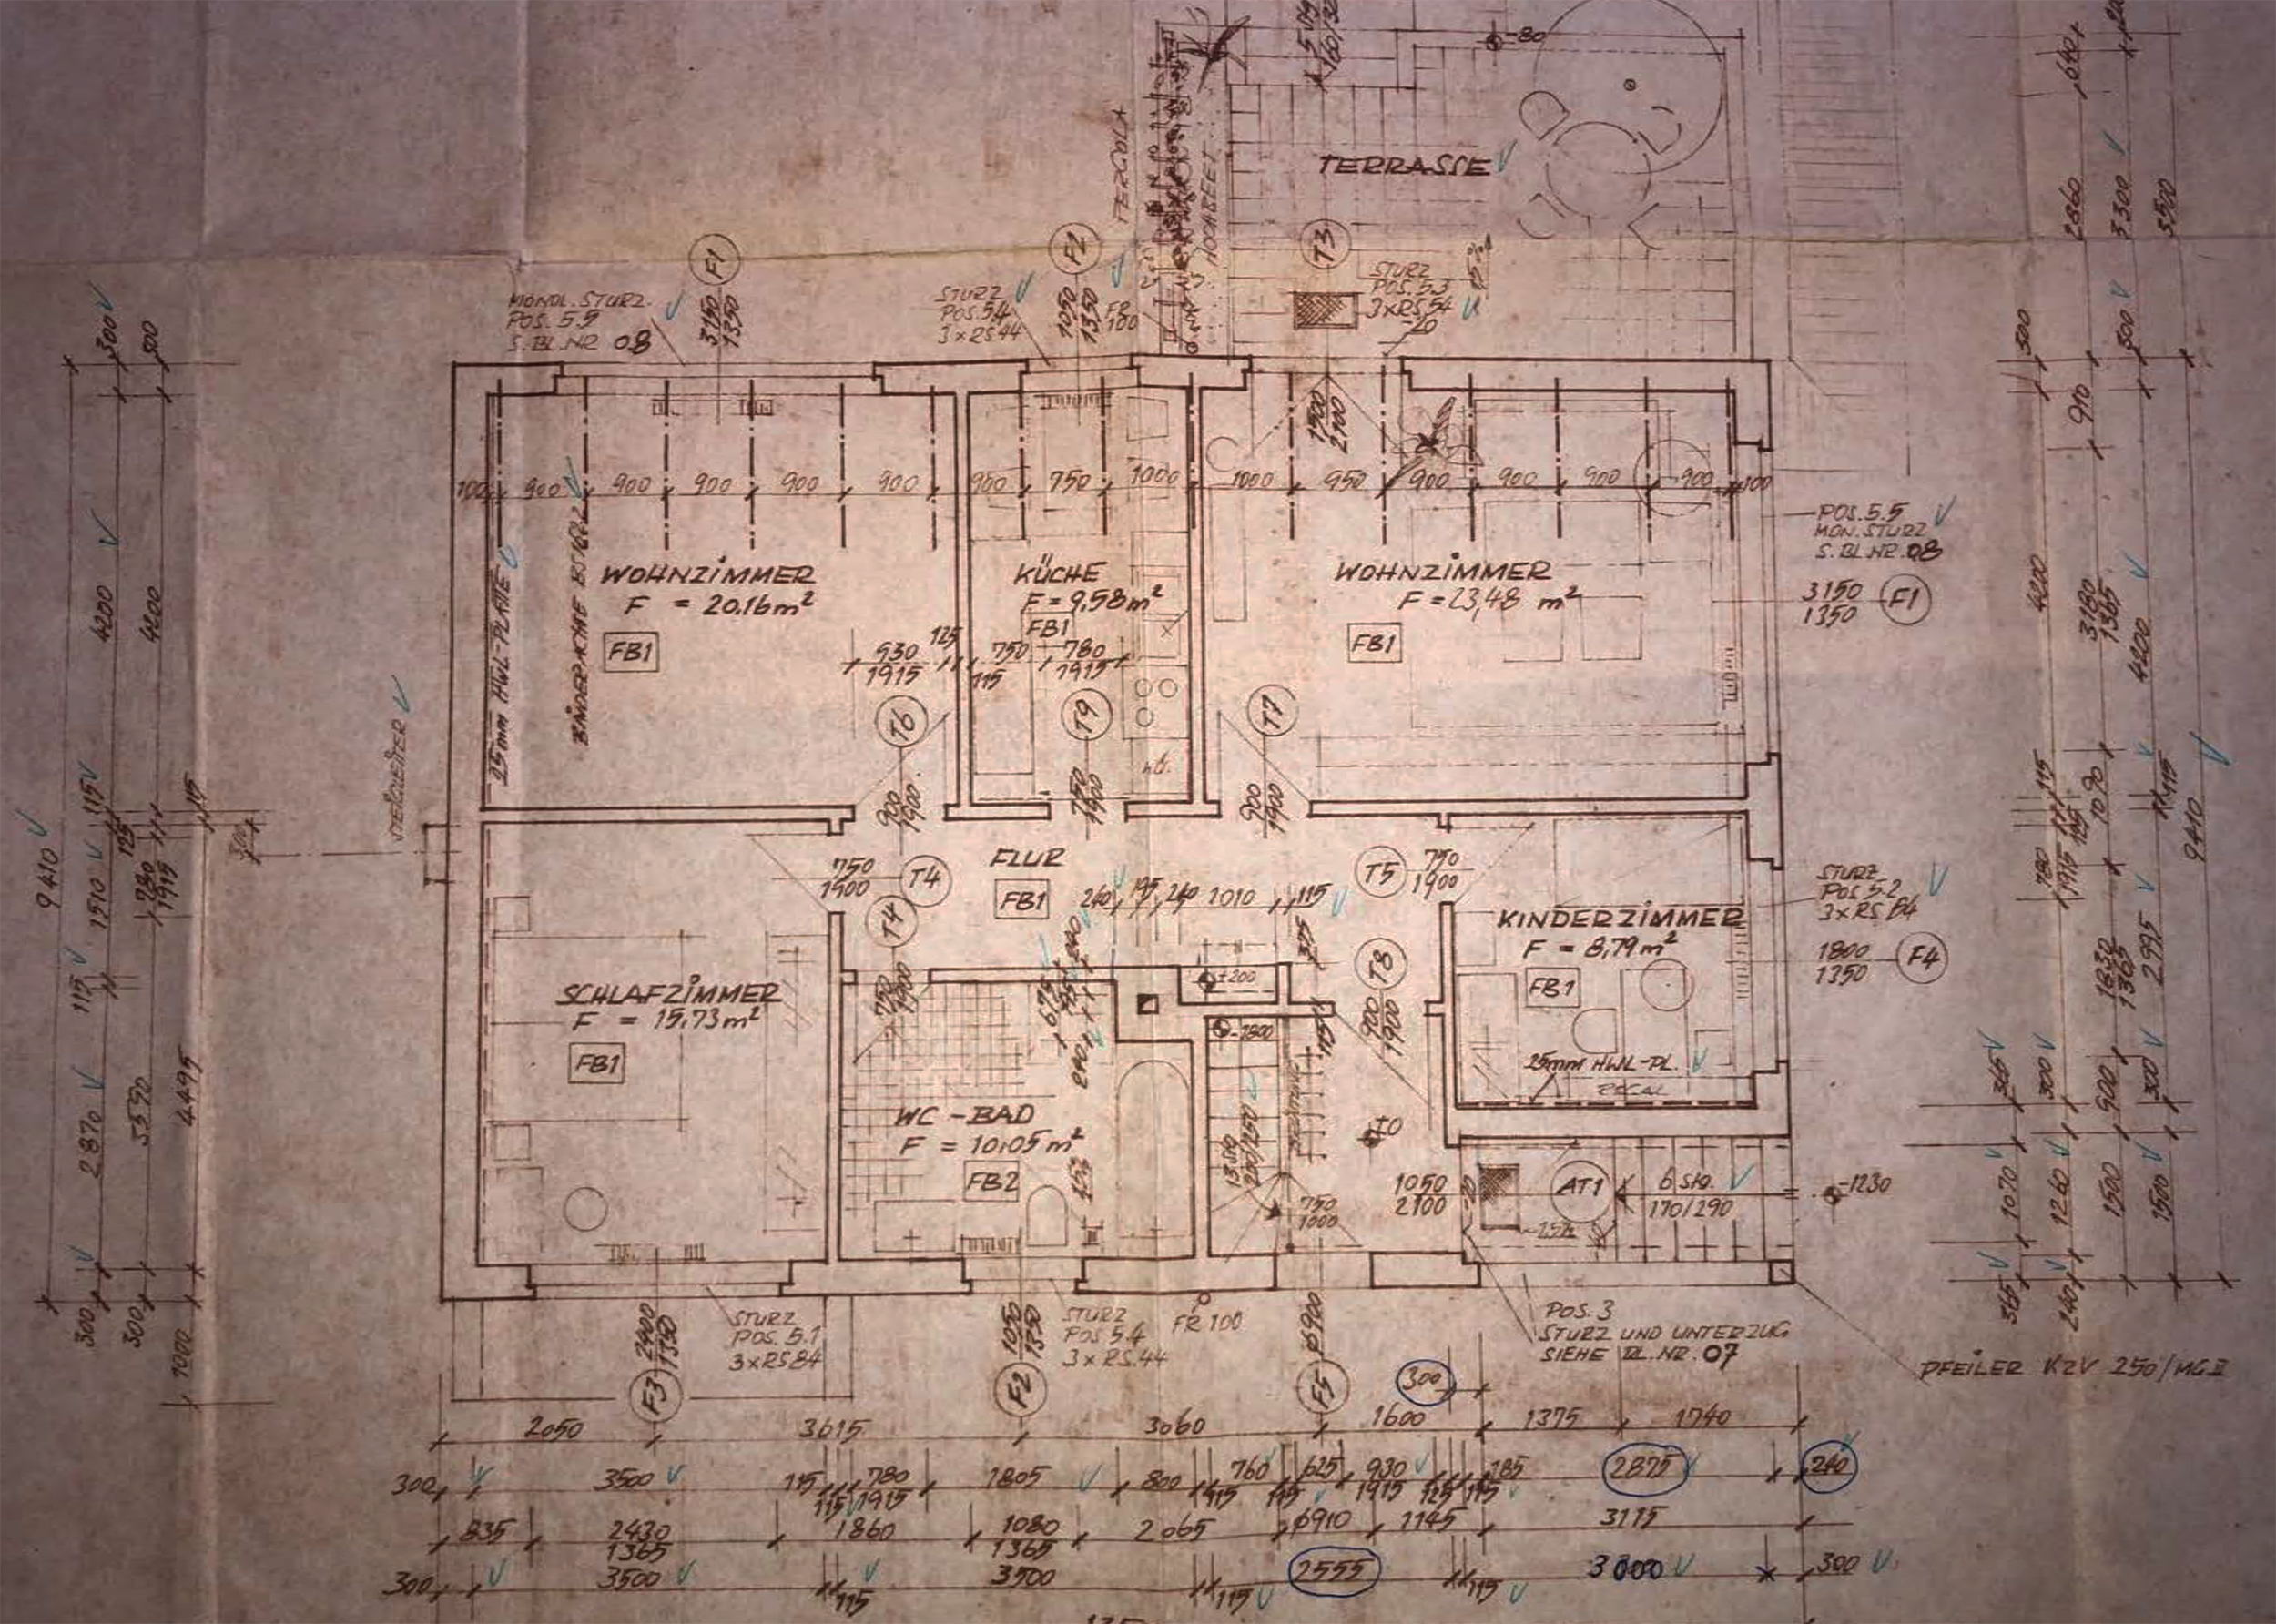 -80
TERRASSE
PERGOLA
HOCHBEET
F1
3150
1350
F2
1050
1350
FR
100
T3
MONOL. STURZ
POS. 5.5
S. BL. NR 08
STURZ
POS. 5.4
3 x RS 44
STURZ
POS. 5.3
3 x RS 54
-20
1500
2100
100
900
900
900
900
900
900
750
1000
1000
950
900
900
900
900
100
25mm HWL-PLATTE
WOHNZIMMER
F = 20.16 m²
FB1
KÜCHE
F = 9,58 m²
FB1
WOHNZIMMER
F = 23,48 m²
FB1
POS. 5.5
MON. STURZ
S. BL. NR. 08
3150
1350
F1
930
1915
125
115
750
780
1915
T6
T9
T7
900
1900
750
1900
900
1900
FLUR
FB1
750
1900
T4
T4
750
1900
T5
750
1900
240
195
240
1010
115
STURZ
POS. 5.2
3 x RS. 64
1800
1350
F4
SCHLAFZIMMER
F = 15,73 m²
FB1
KINDERZIMMER
F = 8,79 m²
FB1
T8
900
1900
±200
-1800
25mm HWL-PL.
REGAL
WC-BAD
F = 10,05 m²
FB2
±0
1050
2100
750
1000
AT1
6 Stg.
170/290
-1230
STURZ
POS. 5.1
3 x RS 84
STURZ
POS. 5.4
3 x RS. 44
FR 100
POS. 3
STURZ UND UNTERZUG
SIEHE BL. NR. 07
PFEILER KZV 250/MG II
2400
1350
F3
1050
1350
F2
F5
300
2050
3615
3060
1600
1375
1740
300
3500
115
115
780
1915
1805
800
115
760
115
625
930
1915
125
115
185
2875
240
835
2430
1365
1860
1080
1365
2065
910
1145
3115
300
3500
115
3500
115
2555
115
3000
300
9410
300
4200
115
1510
115
2870
300
500
4200
125
780
1915
5590
300
115
4495
1000
640
2860
3300
3590
300
500
910
4200
3180
1365
4200
115
780
1915
125
1090
115
9410
1630
1365
2995
365
300
900
300
1070
1260
1500
1500
365
240